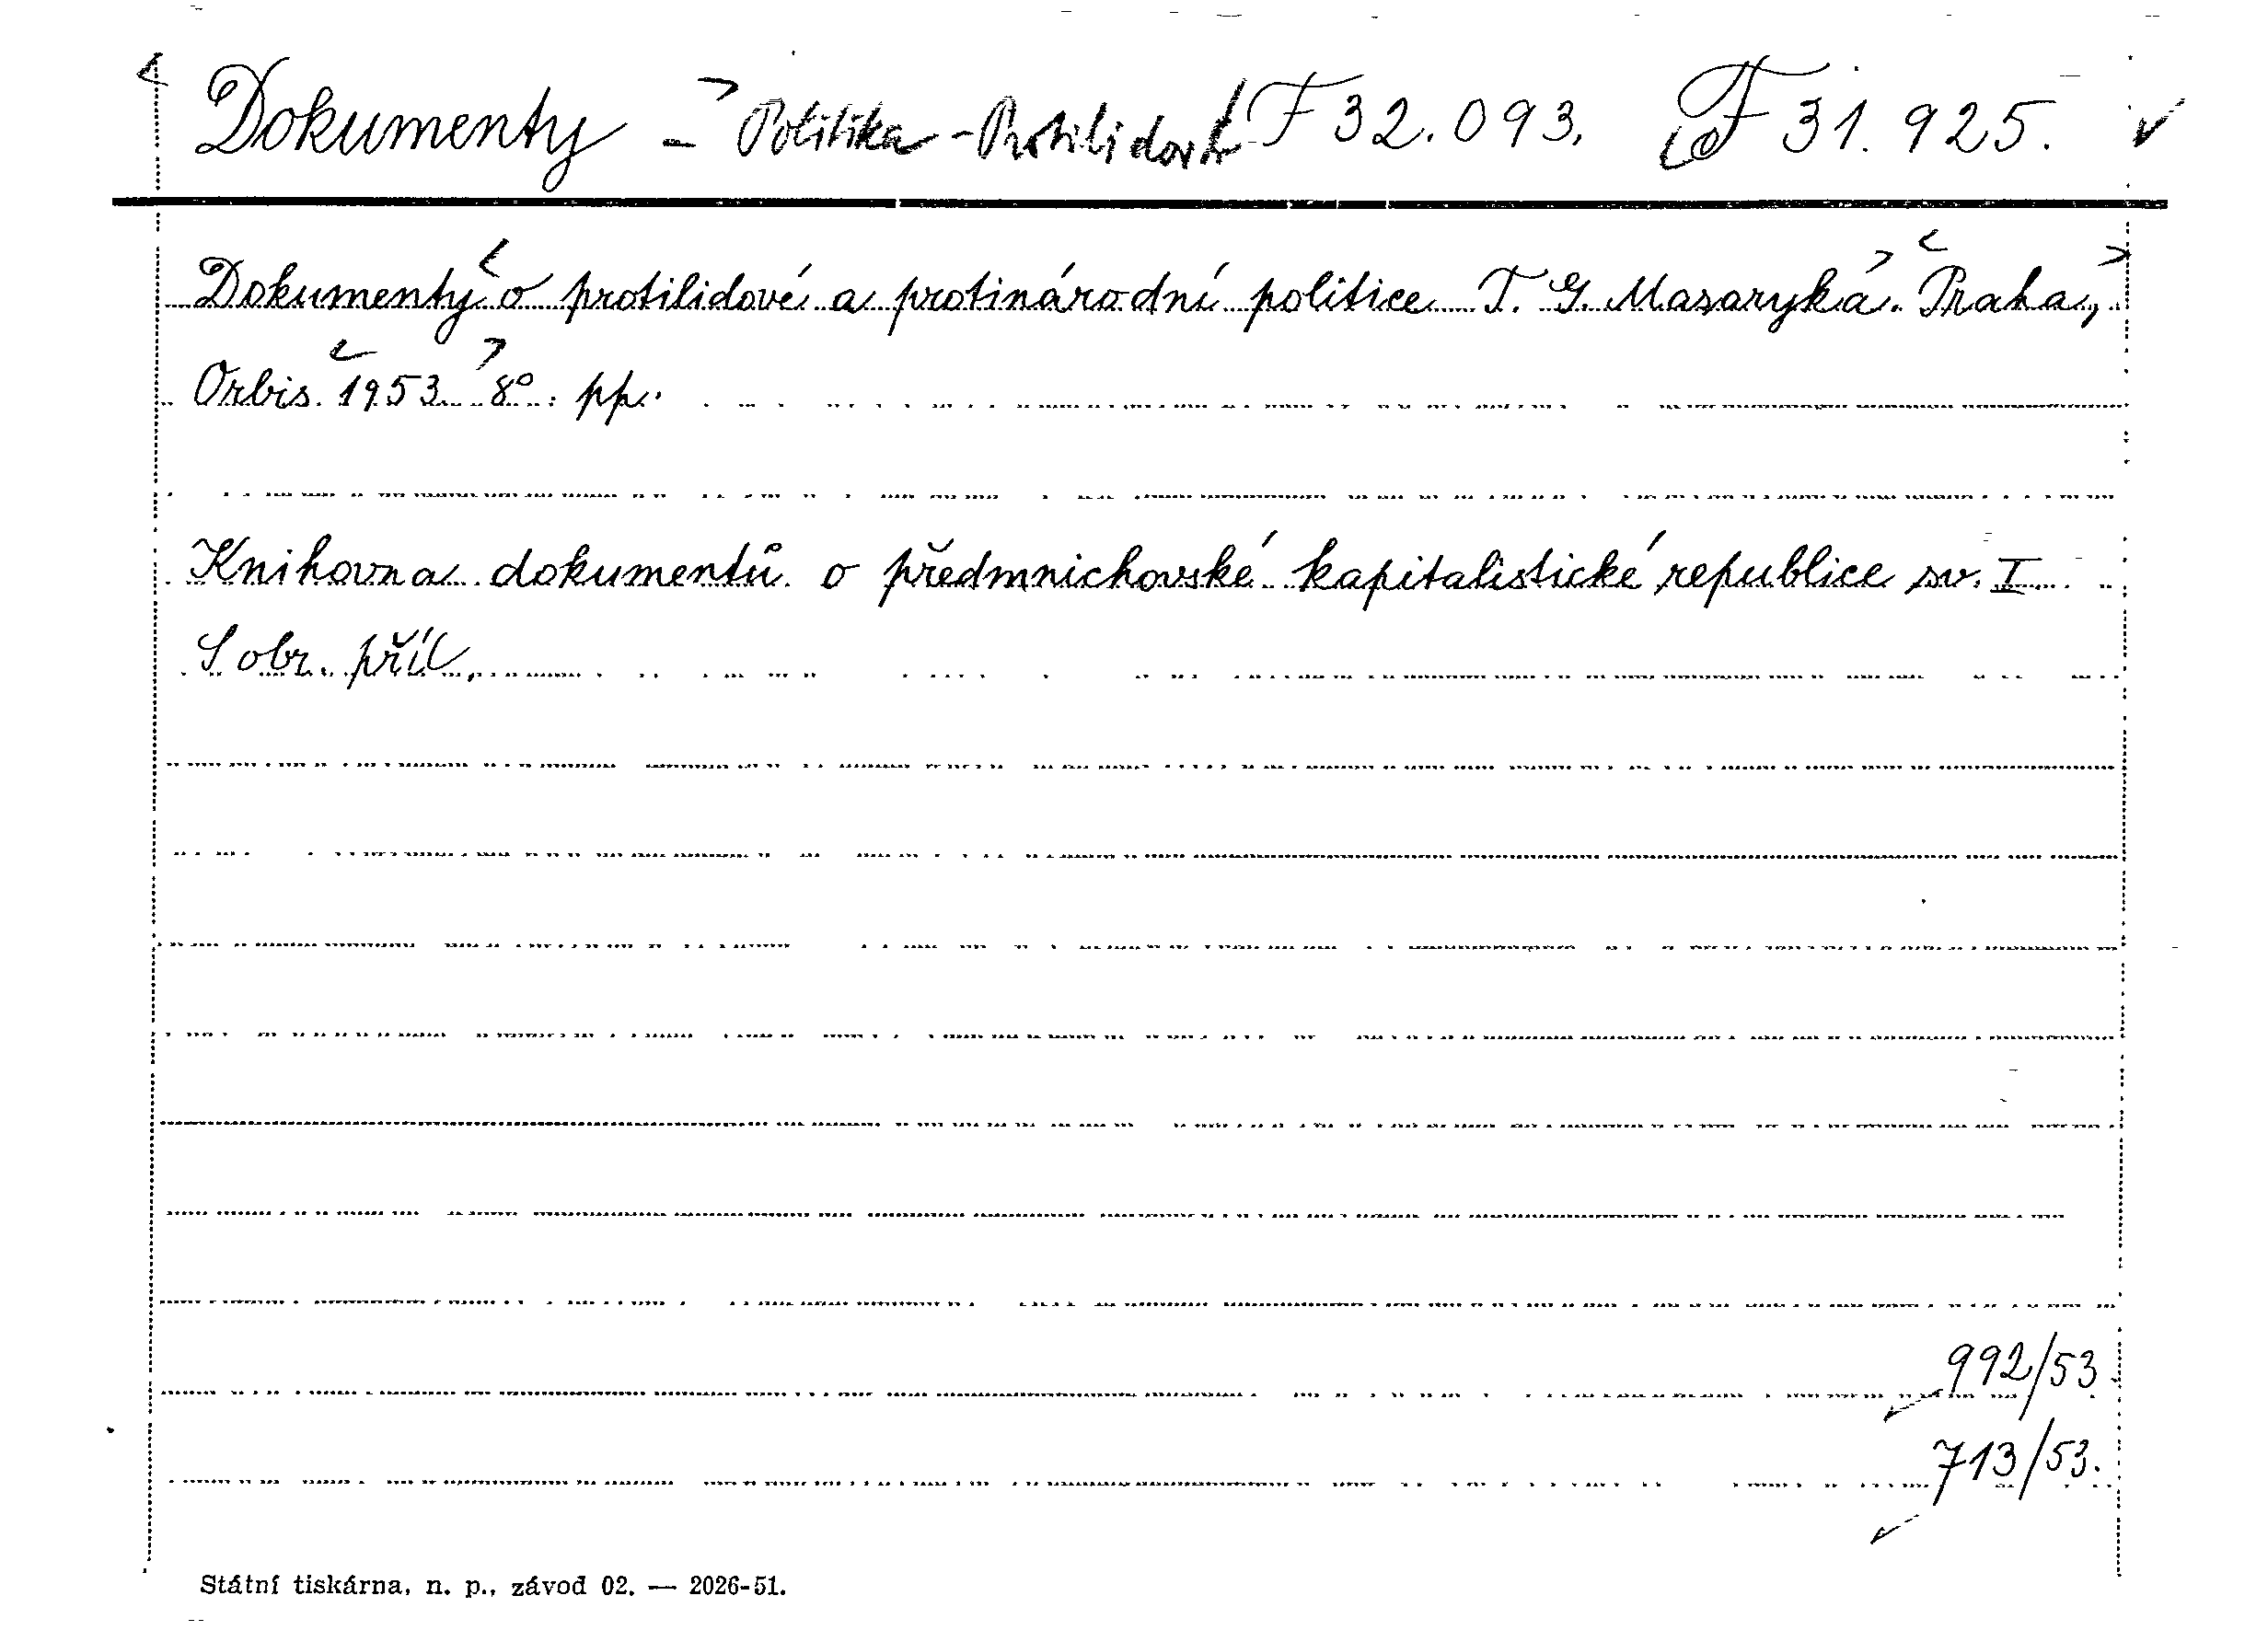 Dokumenty - Politika - Protilidová F 32.093. F 31.925.
Dokumenty o protilidové a protinárodní politice T. G. Masaryka. Praha,
Orbis. 1953. 8°. pp.
Knihovna dokumentů o předmnichovské kapitalistické republice sv. I.
S obr. příl.
992/53.
713/53.
Státní tiskárna, n. p., závod 02. — 2026-51.